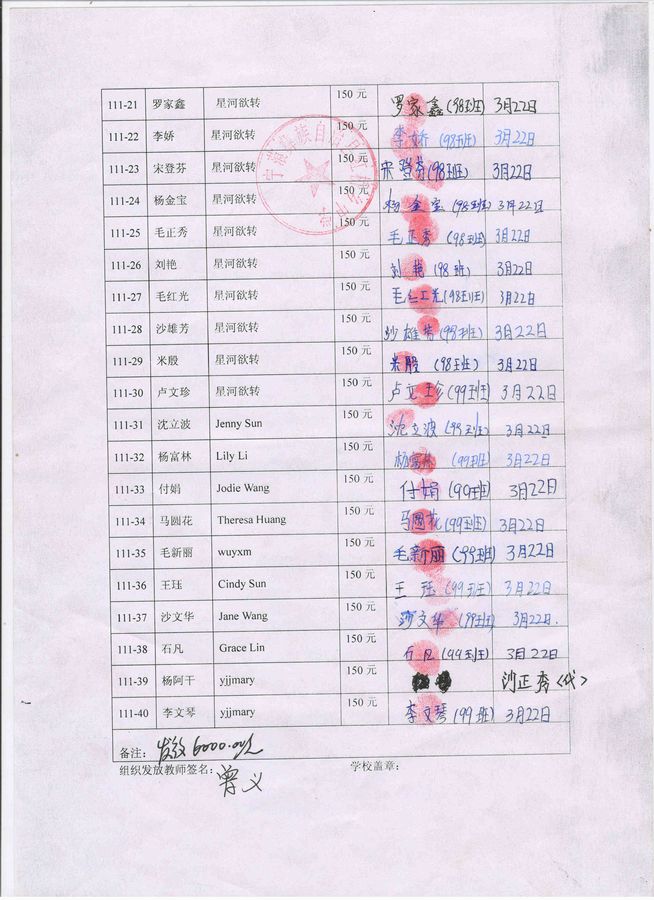 111-21 罗家鑫 星河欲转 150 元 罗家鑫(98班) 3月22日
111-22 李娇 星河欲转 150 元 李娇(98班) 3月22日
111-23 宋登芬 星河欲转 150 元 宋登芬(98班) 3月22日
111-24 杨金宝 星河欲转 150 元 杨金宝(98班) 3月22日
111-25 毛正秀 星河欲转 150 元 毛正秀(98班) 3月22日
111-26 刘艳 星河欲转 150 元 刘艳(98班) 3月22日
111-27 毛红光 星河欲转 150 元 毛红光(98班) 3月22日
111-28 沙雄芳 星河欲转 150 元 沙雄芳(98班) 3月22日
111-29 米殷 星河欲转 150 元 米殷(98班) 3月22日
111-30 卢文珍 星河欲转 150 元 卢文珍(99班) 3月22日
111-31 沈立波 Jenny Sun 150 元 沈立波(99班) 3月22日
111-32 杨富林 Lily Li 150 元 杨富林(99班) 3月22日
111-33 付娟 Jodie Wang 150 元 付娟(99班) 3月22日
111-34 马圆花 Theresa Huang 150 元 马圆花(99班) 3月22日
111-35 毛新丽 wuyxm 150 元 毛新丽(99班) 3月22日
111-36 王珏 Cindy Sun 150 元 王珏(99班) 3月22日
111-37 沙文华 Jane Wang 150 元 沙文华(99班) 3月22日.
111-38 石凡 Grace Lin 150 元 石凡(99班) 3月22日
111-39 杨阿干 yjjmary 150 元 沙正秀(代)
111-40 李文琴 yjjmary 150 元 李文琴(99班) 3月22日
备注: 发放6000.00元
组织发放教师签名: 曾义 学校盖章: